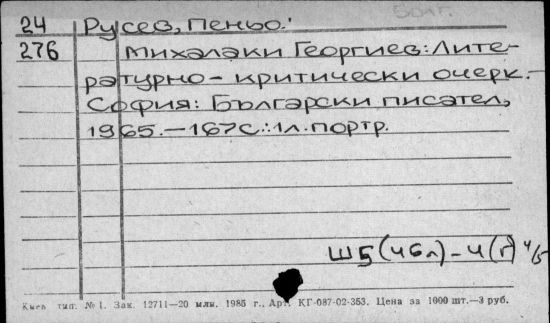 24 Русев, Пеньо.
276 Михалаки Георгиев: Лите-
ратурно-критически очерк.-
София: Български писател,
1965.-167с.:1л.портр.
Ш5(4Бл)-4(Г) 4/5
Киев тип. №1. Зак. 12711—20 млн. 1985 г., Арт. КГ-087-02-353. Цена за 1000 шт.—3 руб.